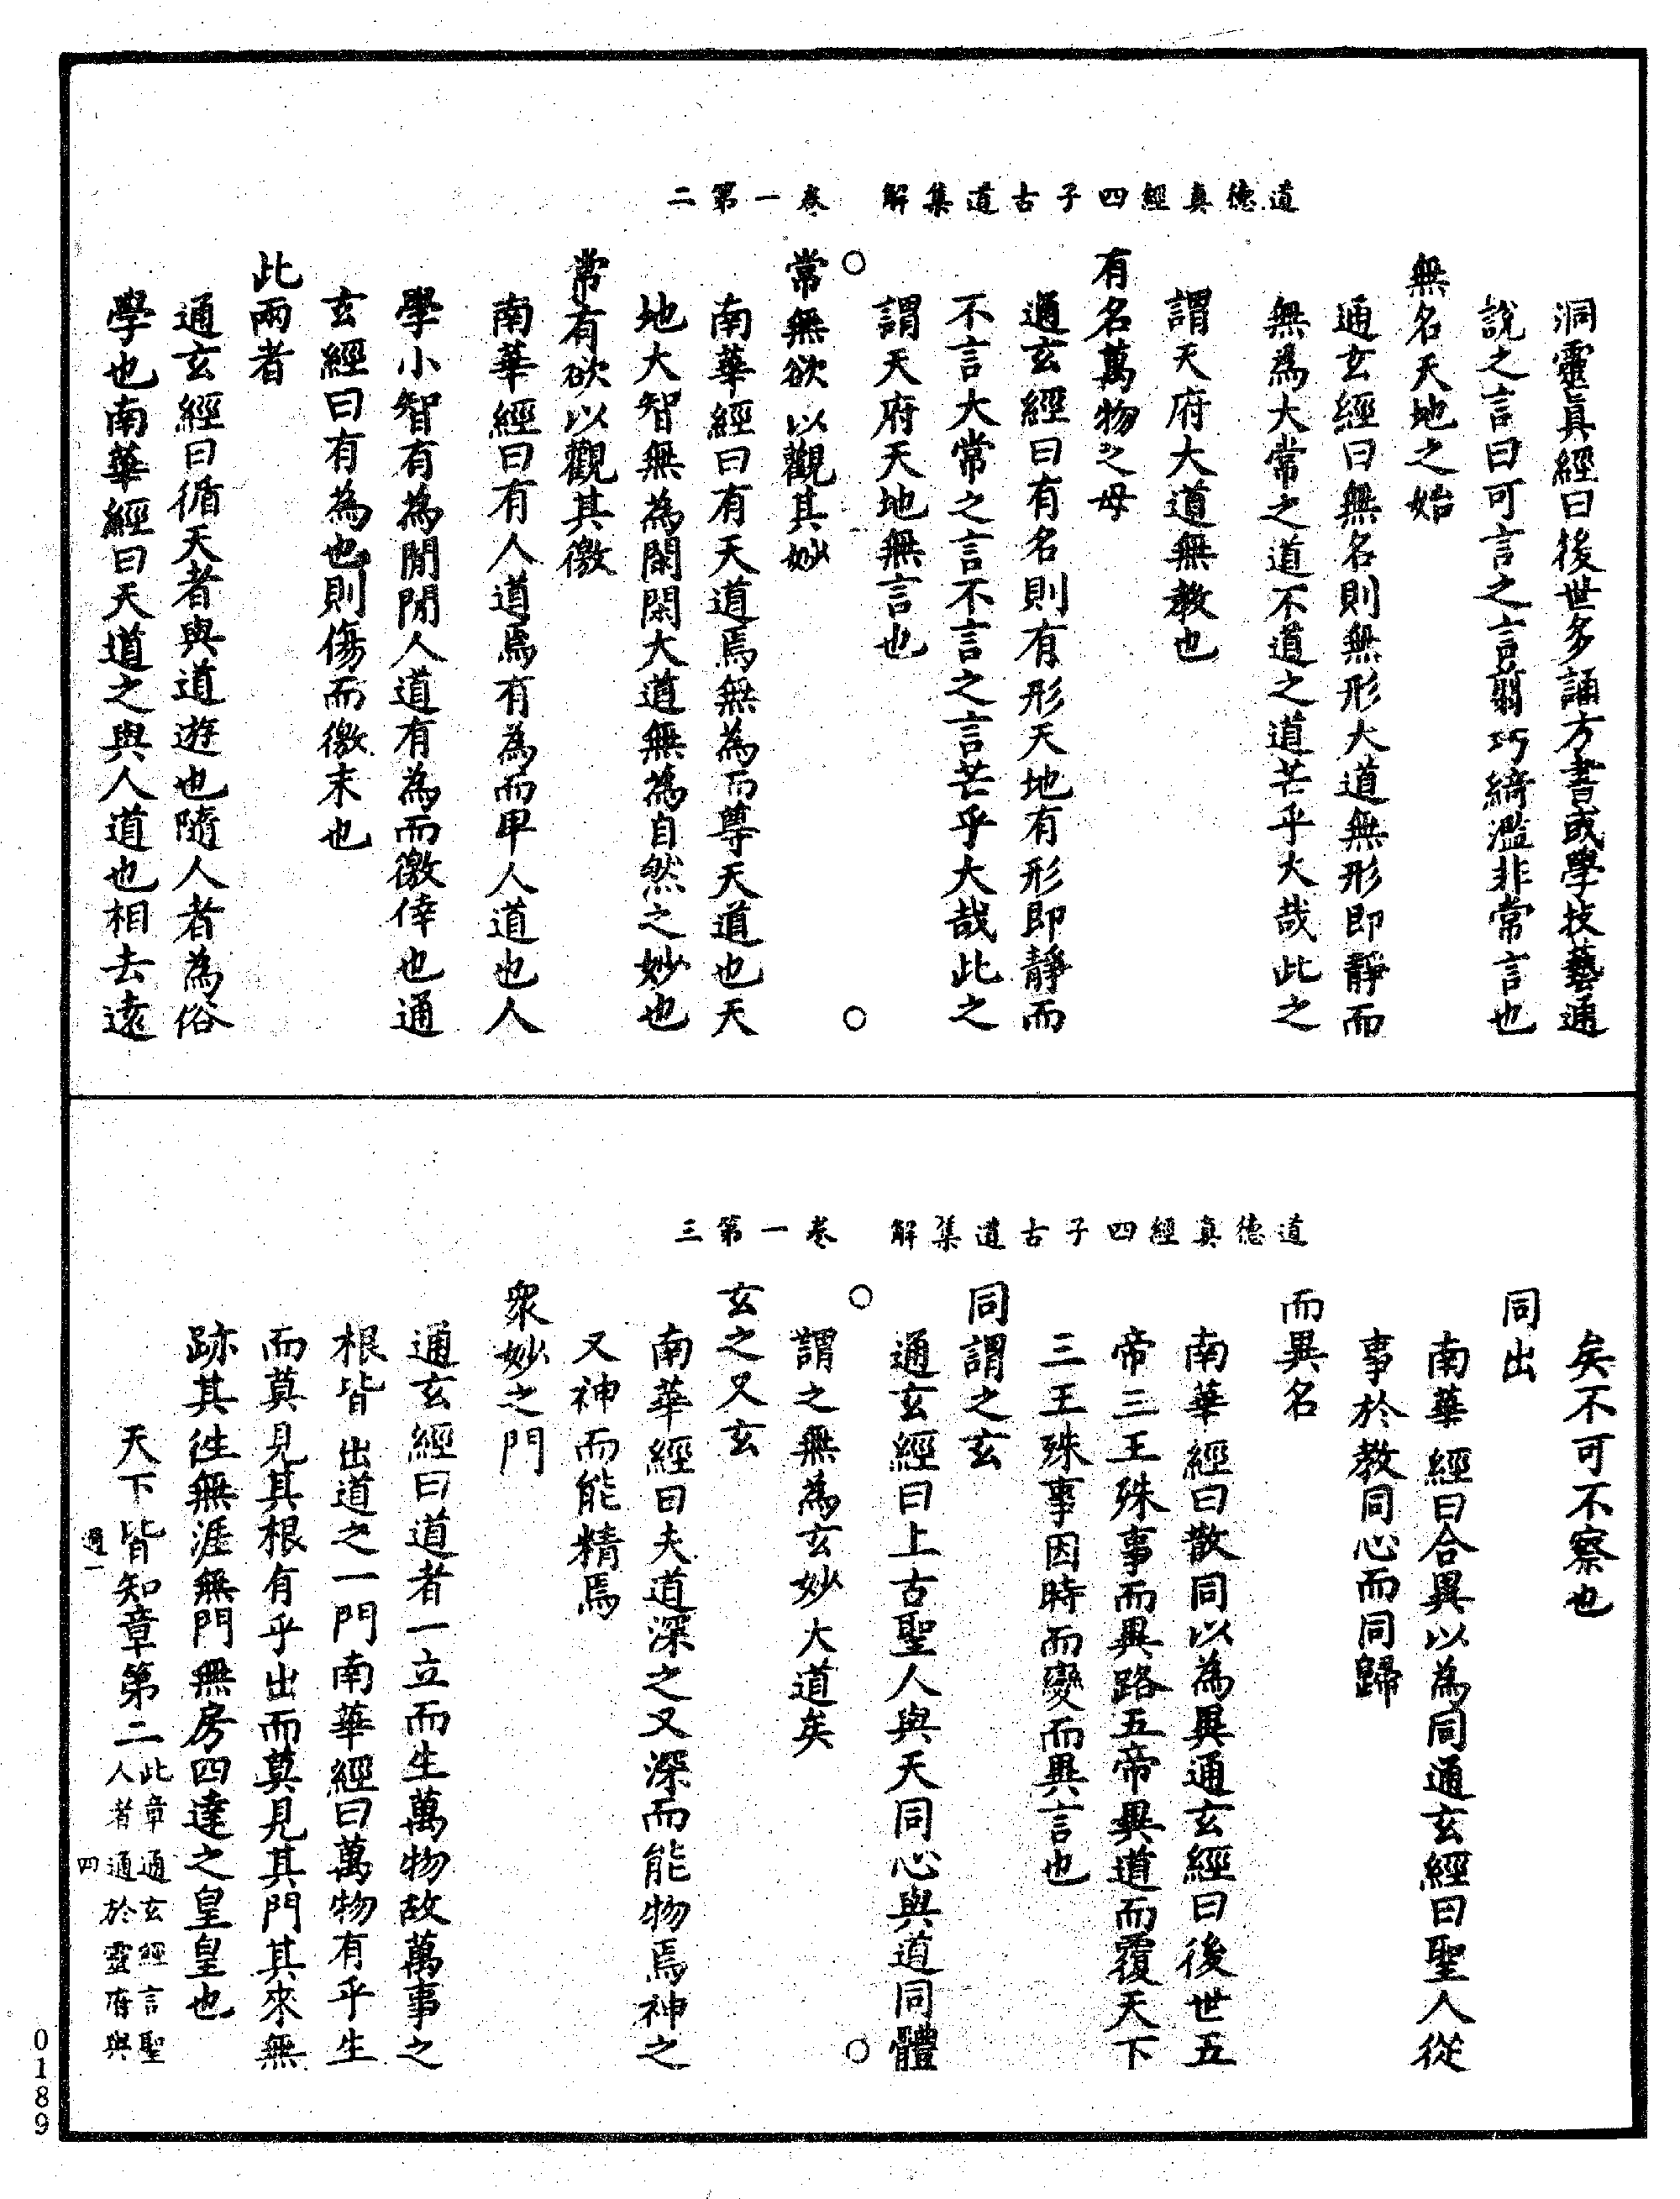 道德真經四子古道集解　卷一第二
洞靈真經曰後世多誦方書或學技藝通
說之言曰可言之言翦巧綺濫非常言也
無名天地之始
通玄經曰無名則無形大道無形即靜而
無為大常之道不道之道芒乎大哉此之
謂天府大道無教也
有名萬物之母
通玄經曰有名則有形天地有形即靜而
不言大常之言不言之言芒乎大哉此之
謂天府天地無言也
○　○
常無欲以觀其妙
南華經曰有天道焉無為而尊天道也天
地大智無為閑閑大道無為自然之妙也
常有欲以觀其徼
南華經曰有人道焉有為而甲人道也人
學小智有為閒閒人道有為而徼倖也通
玄經曰有為也則傷而徼末也
此兩者
通玄經曰循天者與道遊也隨人者為俗
學也南華經曰天道之與人道也相去遠
道德真經四子古道集解　卷一第三
矣不可不察也
同出
南華經曰合異以為同通玄經曰聖人從
事於教同心而同歸
而異名
南華經曰散同以為異通玄經曰後世五
帝三王殊事而異路五帝異道而覆天下
三王殊事因時而變而異言也
同謂之玄
通玄經曰上古聖人與天同心與道同體
○　○
謂之無為玄妙大道矣
玄之又玄
南華經曰夫道深之又深而能物焉神之
又神而能精焉
眾妙之門
通玄經曰道者一立而生萬物故萬事之
根皆出道之一門南華經曰萬物有乎生
而莫見其根有乎出而莫見其門其來無
跡其往無涯無門無房四達之皇皇也
天下皆知章第二此章通玄經言聖
人者通於靈府與
過一　四
0189